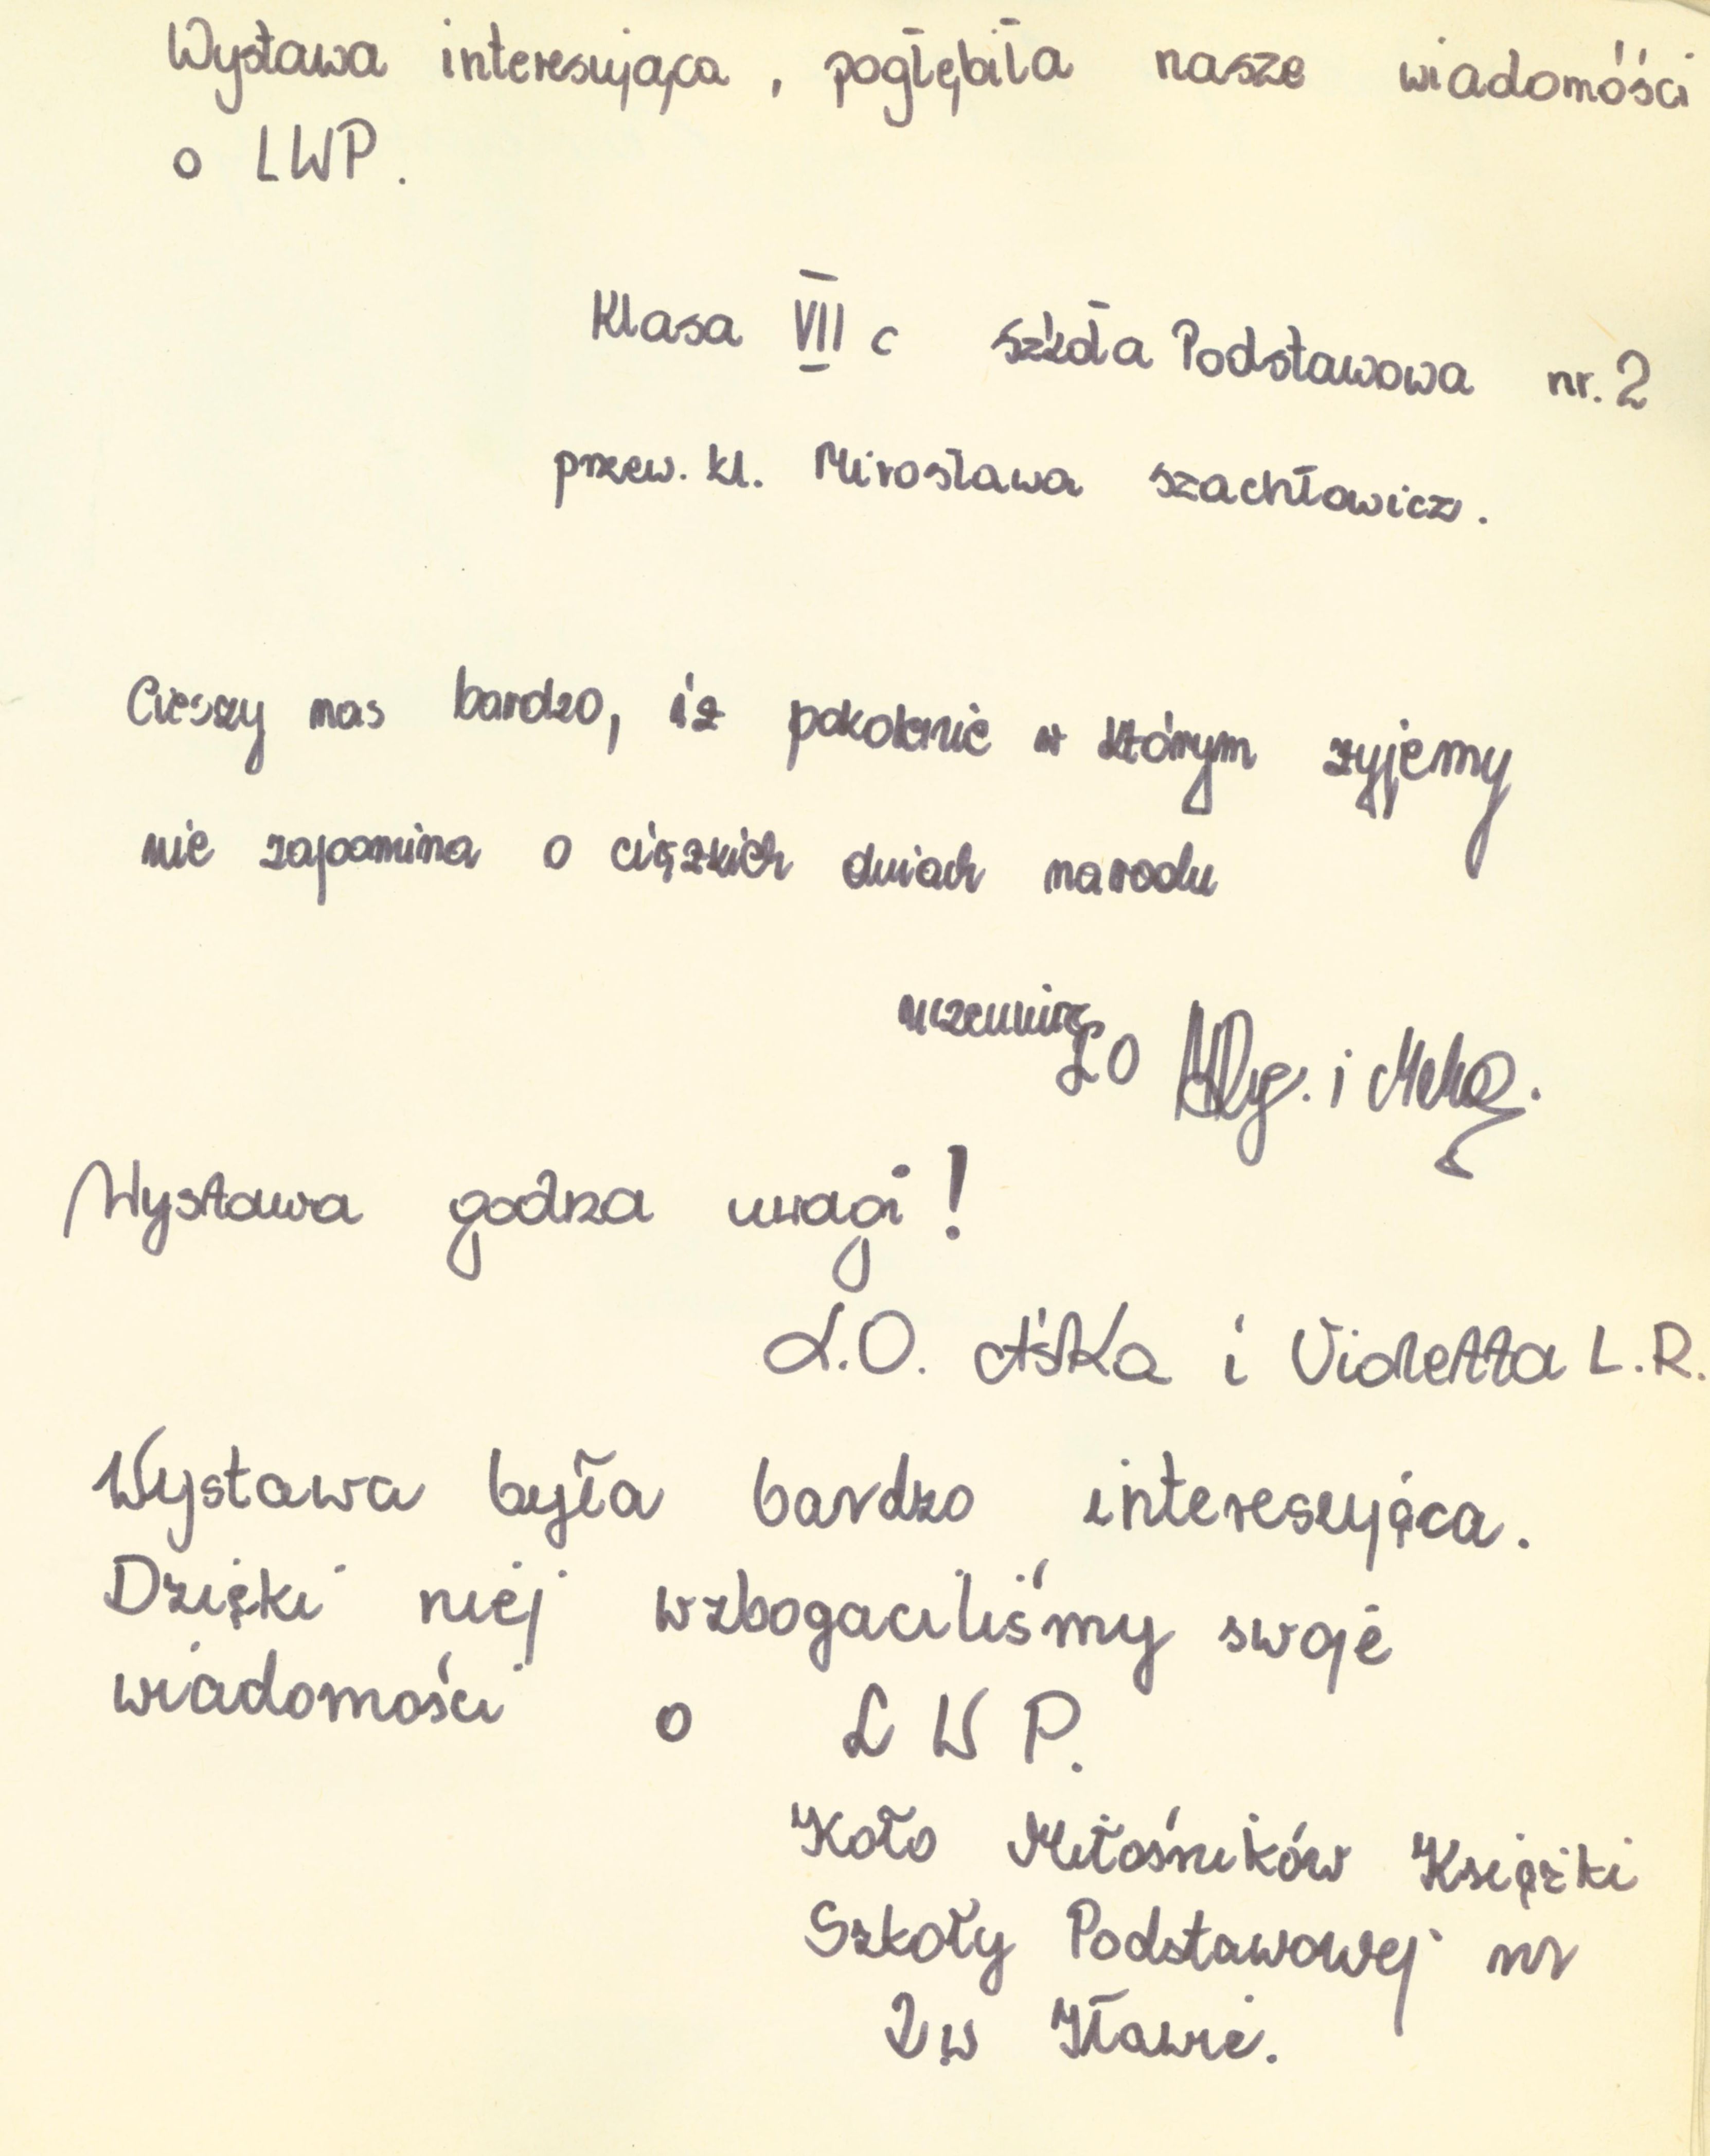 Wystawa interesująca, pogłębiła nasze wiadomóści
o LWP.
Klasa VII c szkoła Podstawowa nr. 2
przew. kl. Mirosława szachłowicz.
Cieszy nas bardzo, iż pokolenie w którym żyjemy
nie zapomina o ciężkich dniach narodu
uczennice
LO i
Wystawa godna uwagi!
L.O. Aśka i Violetta L.R.
Wystawa była bardzo interesująca.
Dzięki niej wzbogaciliśmy swoje
wiadomości o LWP.
Koło Miłośników Książki
Szkoły Podstawowej nr
2 w Iławie.